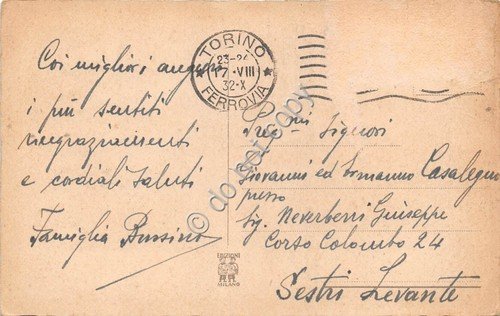 Coi migliori auguri
i più sentiti
ringraziamenti
e cordiali saluti
Famiglia Bussino
TORINO
23-24
17·VIII
32·X
FERROVIA
Preg.mi Signori
Giovanni ed Ermanno Casalegno
presso
Sig. Neverbeni Giuseppe
Corso Colombo 24
Sestri Levante
EDIZIONI
MILANO